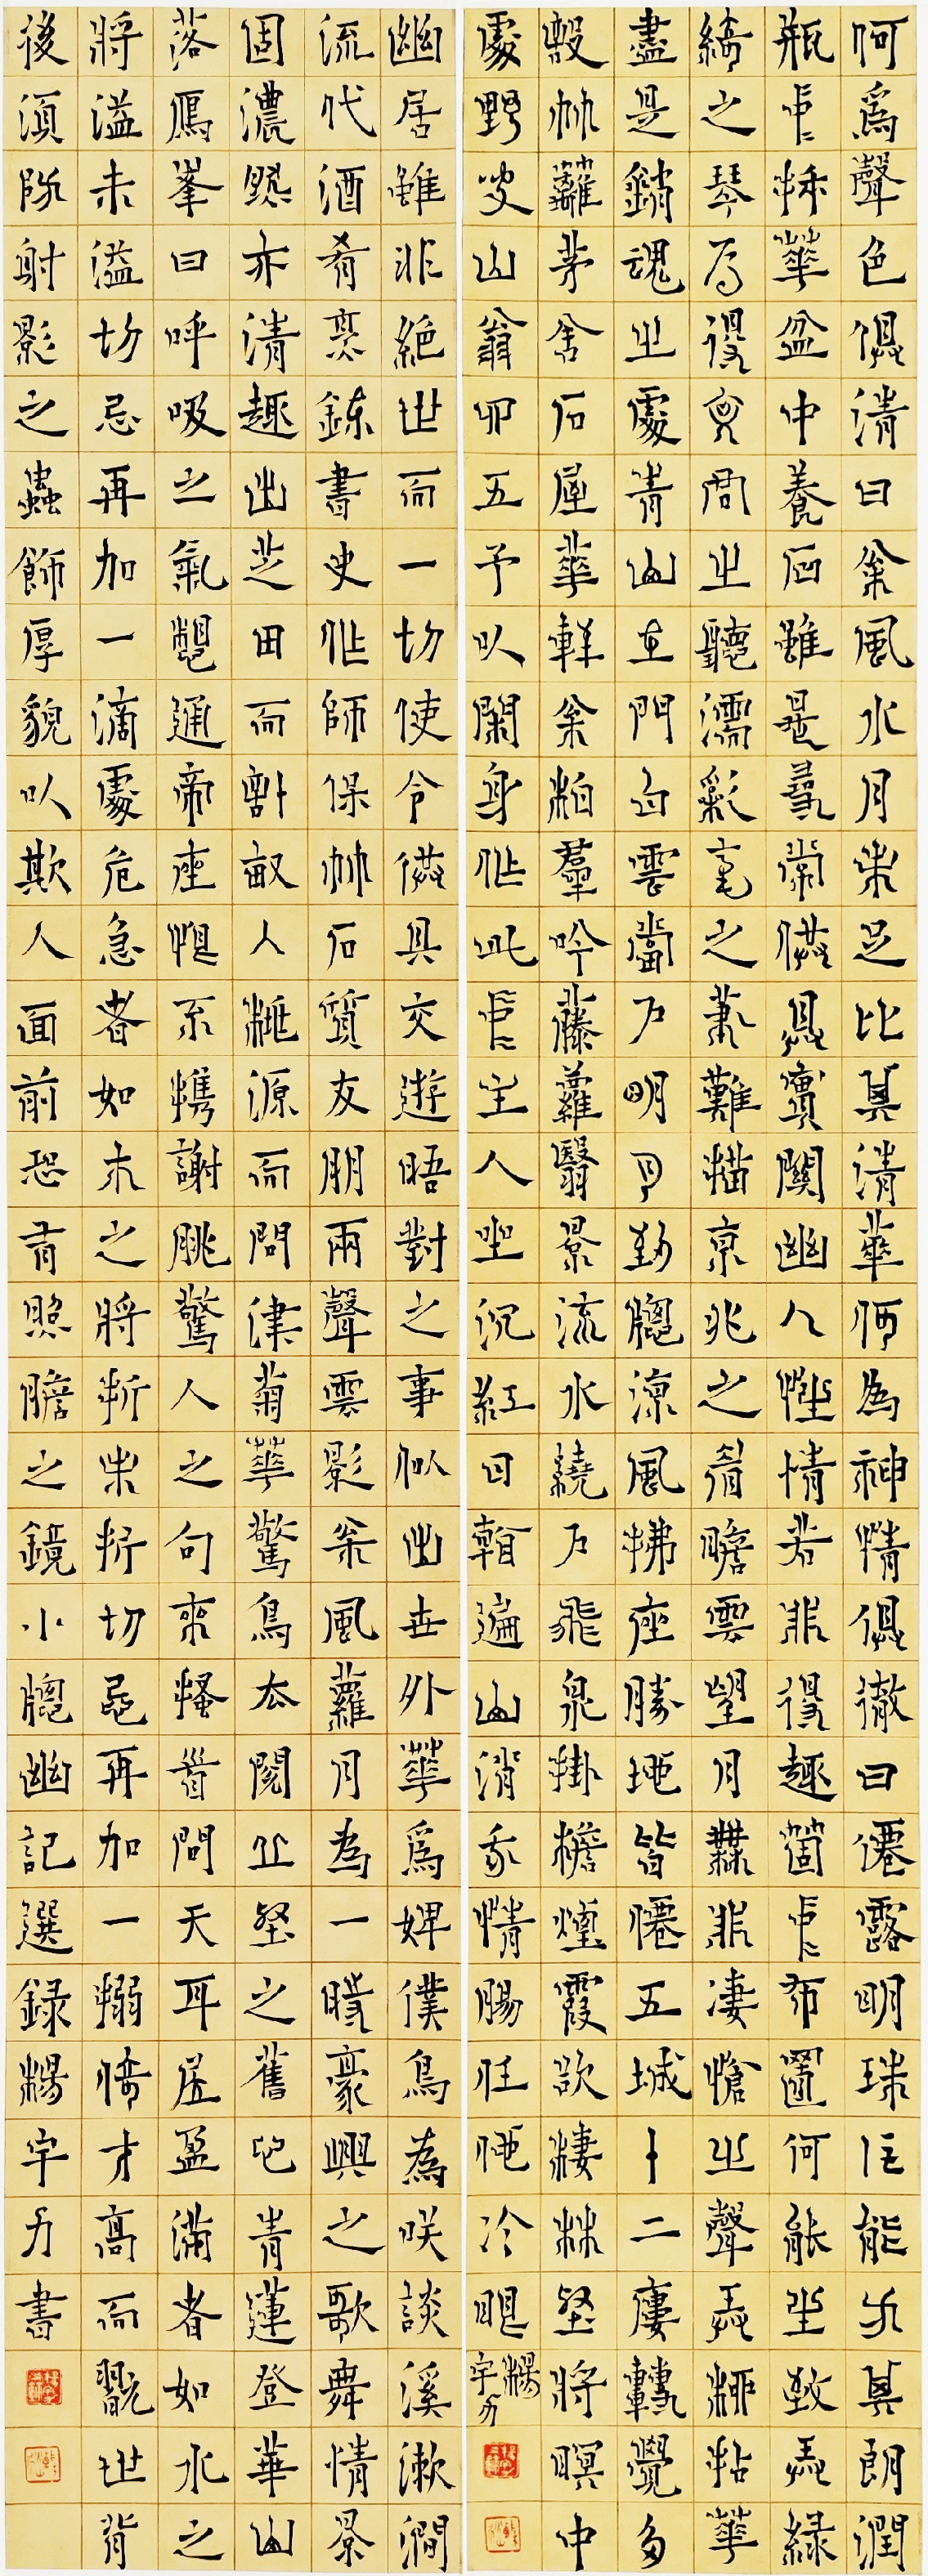 何爲聲色俱清曰松風水月未足比其清華何為神情俱徹曰僊露明珠詎能方其朗潤
瓶中插華盆中養石雖是尋常供具實關幽人性情若非得趣箇中布置何能生致弄緑
綺之琴焉得文君之聽濡彩毫之筆難描京兆之眉瞻雲望月無非悽愴之聲弄柳拈華
盡是銷魂之處青山在門白雲當戶明月到牕涼風拂座勝地皆僊五城十二樓轉覺多
設竹籬茅舍石屋華軒松柏羣吟藤蘿翳景流水繞戶飛泉掛檐煙霞欲棲林壑將暝中
處野叟山翁四五予以閑身作此中主人坐沉紅日看遍山消我情腸任他冷眼
楊宇力
幽居雖非絕世而一切使令供具交遊晤對之事似出世外華爲婢僕鳥為咲談溪漱澗
流代酒肴烹鍊書史作師保竹石質友朋雨聲雲影松風蘿月為一時豪興之歌舞情景
固濃然亦清趣出芝田而割畝人桃源而問津菊華驚鳥去閱丘壑之舊青蓮登華山
落鴈峯曰呼吸之氣想通帝座恨不攜謝朓驚人之句來搔首問天耳居盈滿者如水之
將溢未溢切忌再加一滴處危急者如木之將折未折切忌再加一搦倚才高而翫世背
後須防射影之蟲飾厚貌以欺人面前恐有照膽之鏡小牕幽記選録楊宇力書